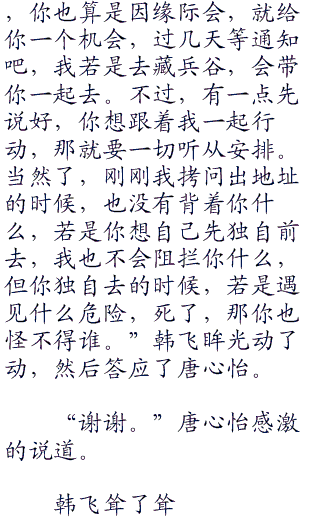 ，你也算是因缘际会，就给
你一个机会，过几天等通知
吧，我若是去藏兵谷，会带
你一起去。不过，有一点先
说好，你想跟着我一起行
动，那就要一切听从安排。
当然了，刚刚我拷问出地址
的时候，也没有背着你什
么，若是你想自己先独自前
去，我也不会阻拦你什么，
但你独自去的时候，若是遇
见什么危险，死了，那你也
怪不得谁。”韩飞眸光动了
动，然后答应了唐心怡。
“谢谢。”唐心怡感激
的说道。
韩飞耸了耸